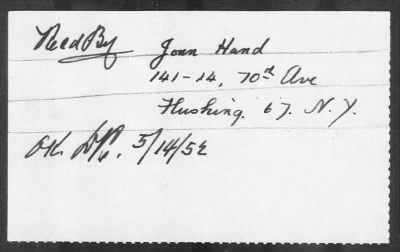 Recd By Joan Hand
141-14, 70th Ave
Flushing. 67. N.Y.
OK. 5/14/52